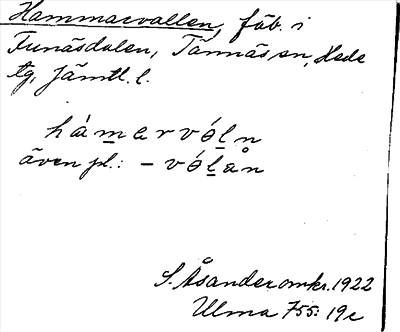 Hammarvallen, fäb. i
Funäsdalen, Tännäs sn, Hede
tg, Jämtl. l.
hámarvóḷn
även pl.: -vóḷan
S. Åsander omkr. 1922
Ulma 755: 19c